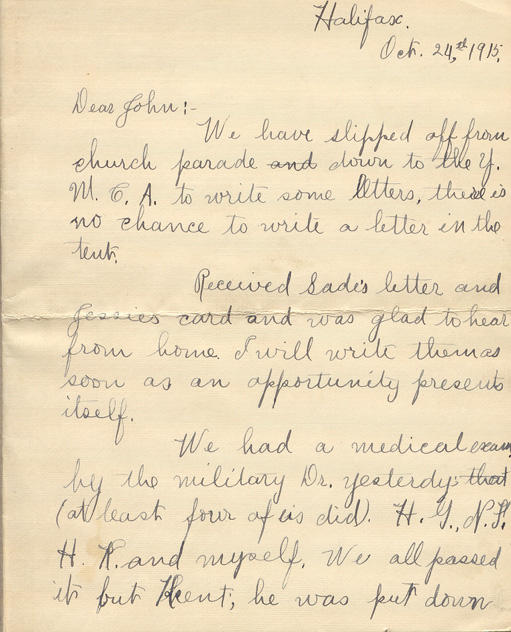 Halifax.
Oct. 24th, 1915.
Dear John:-
We have slipped off from
church parade and down to the Y.
M. C. A. to write some letters, there is
no chance to write a letter in the
tent.
Received Sadie's letter and
Jessies card and was glad to hear
from home. I will write them as
soon as an opportunity presents
itself.
We had a medical exam
by the military Dr. yesterdy that
(at least four of us did). H. G.,
H. K. and myself. We all passed
it but Kent, he was put down